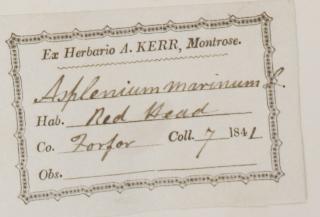 Ex Herbario A. KERR, Montrose.
Asplenium marinum L.
Hab. Red Head
Co. Forfor Coll. 7 1841
Obs.